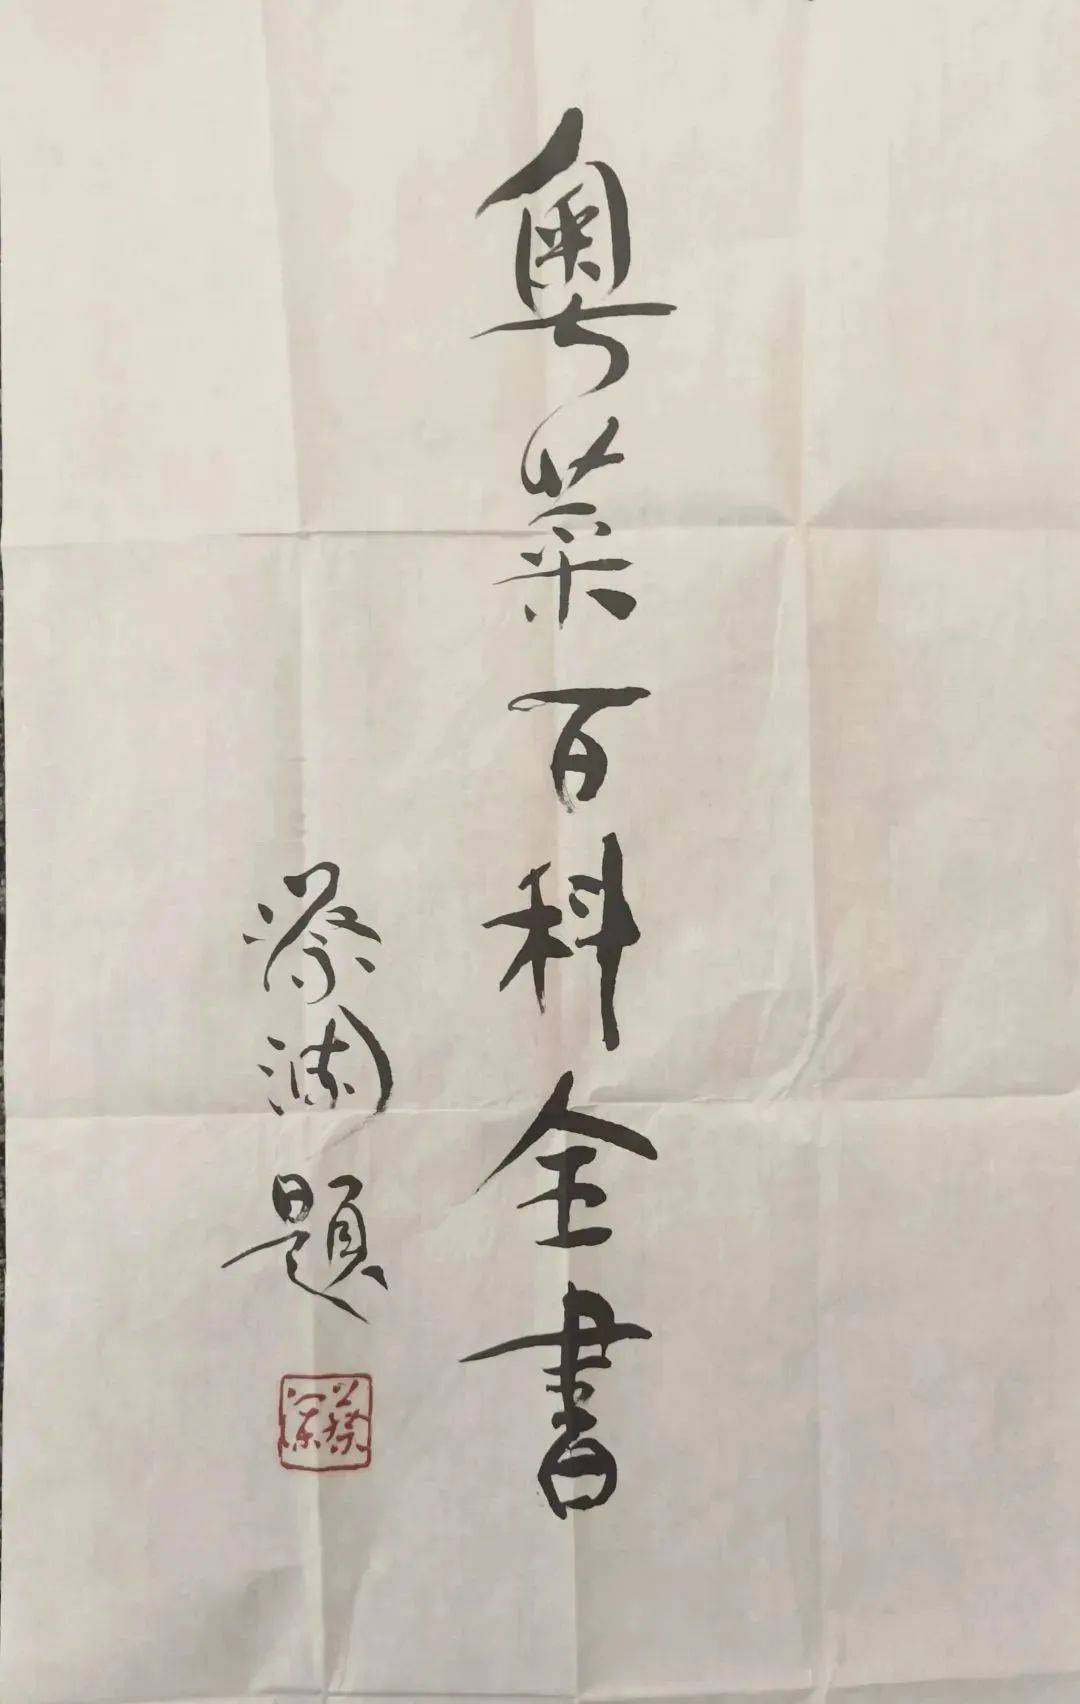 粤菜百科全書
蔡瀾題
蔡瀾